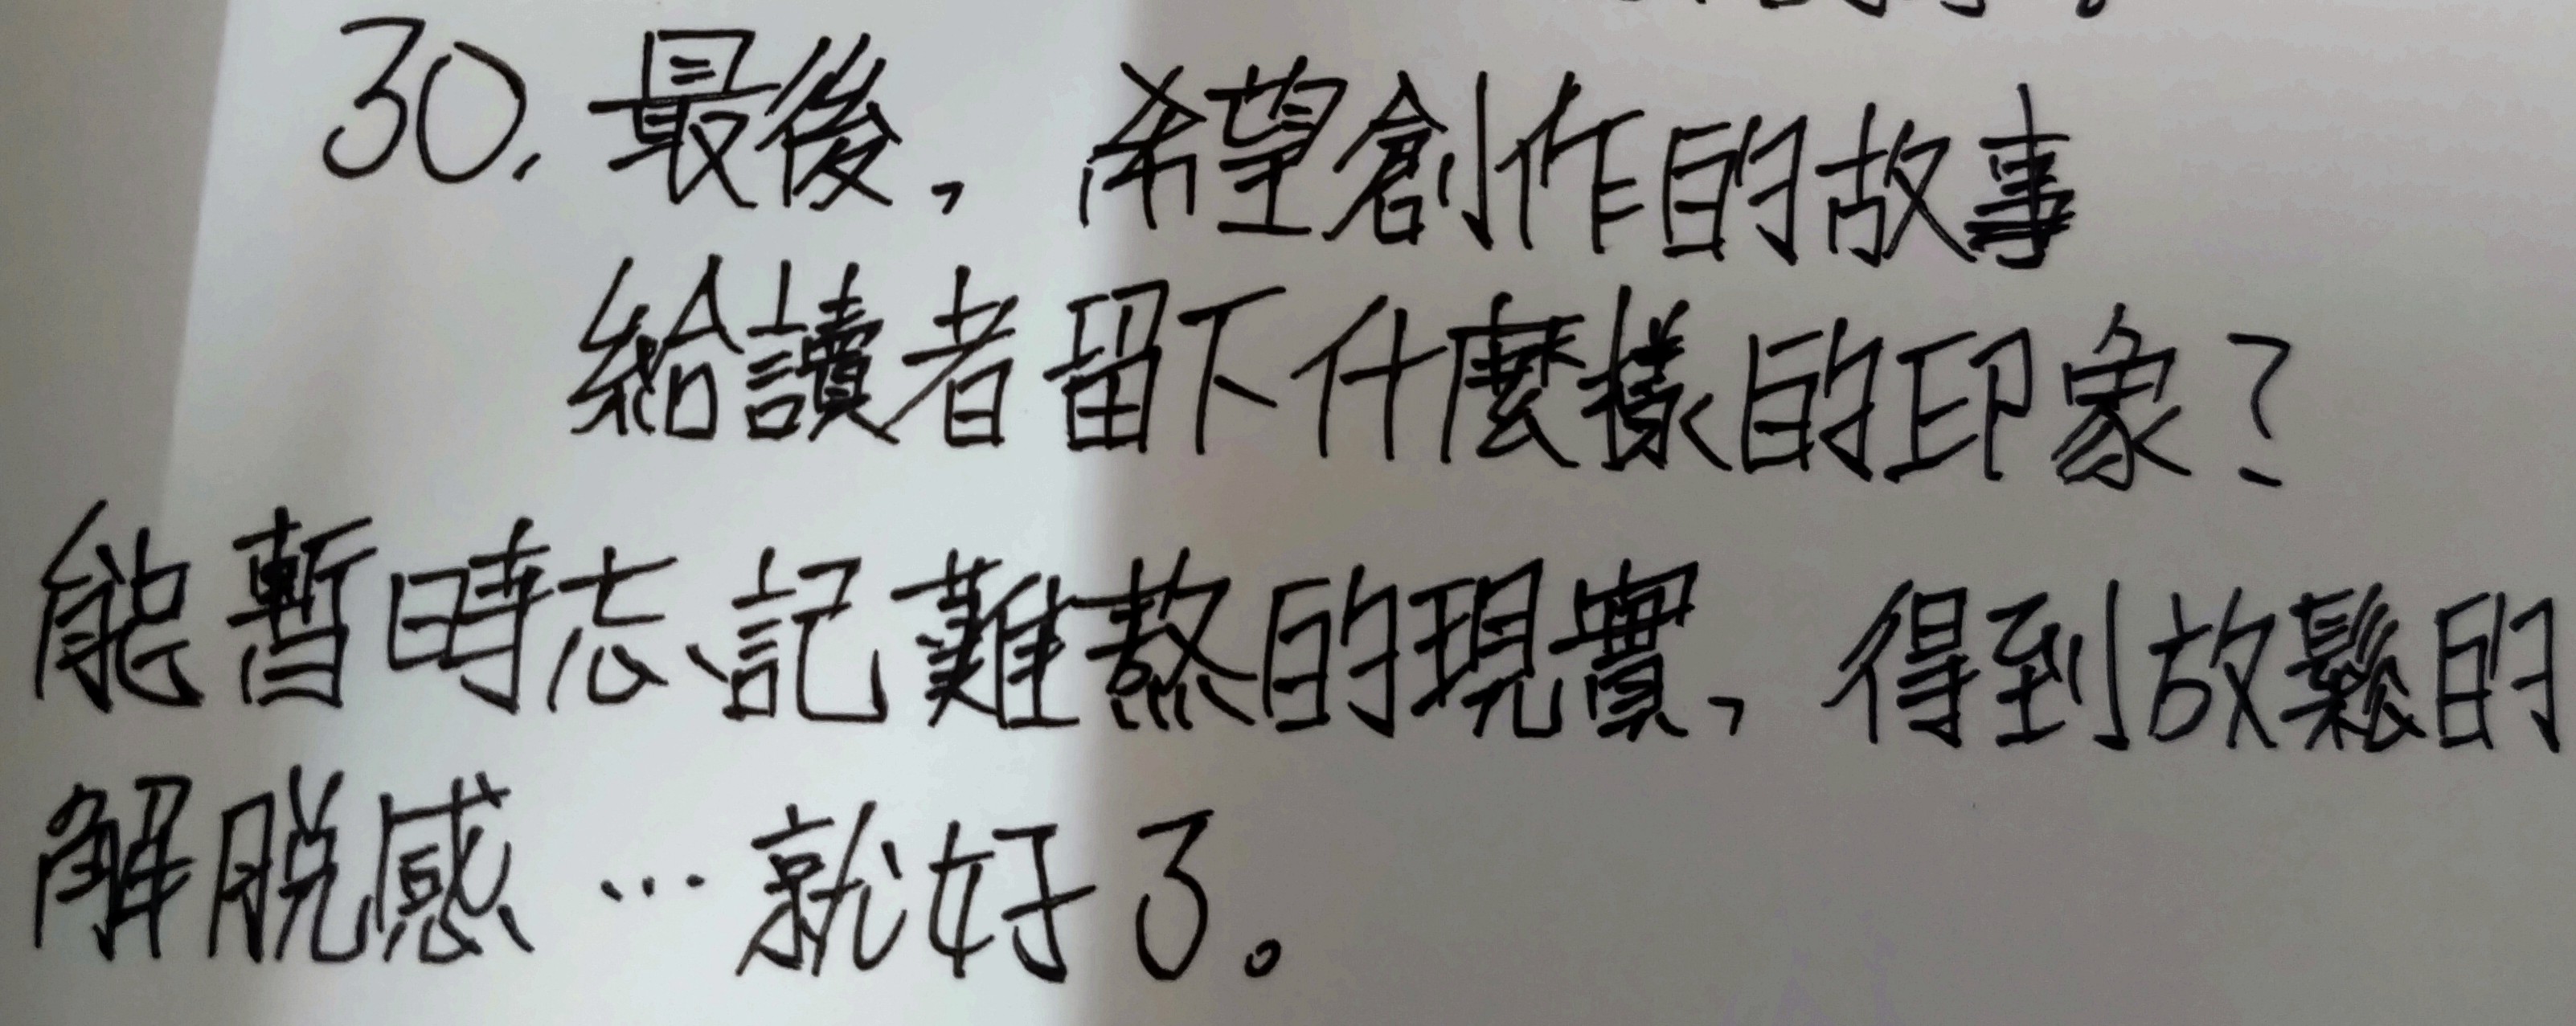 30. 最後，希望創作的故事
給讀者留下什麼樣的印象？
能暫時忘記難熬的現實，得到放鬆的
解脫感…就好了。